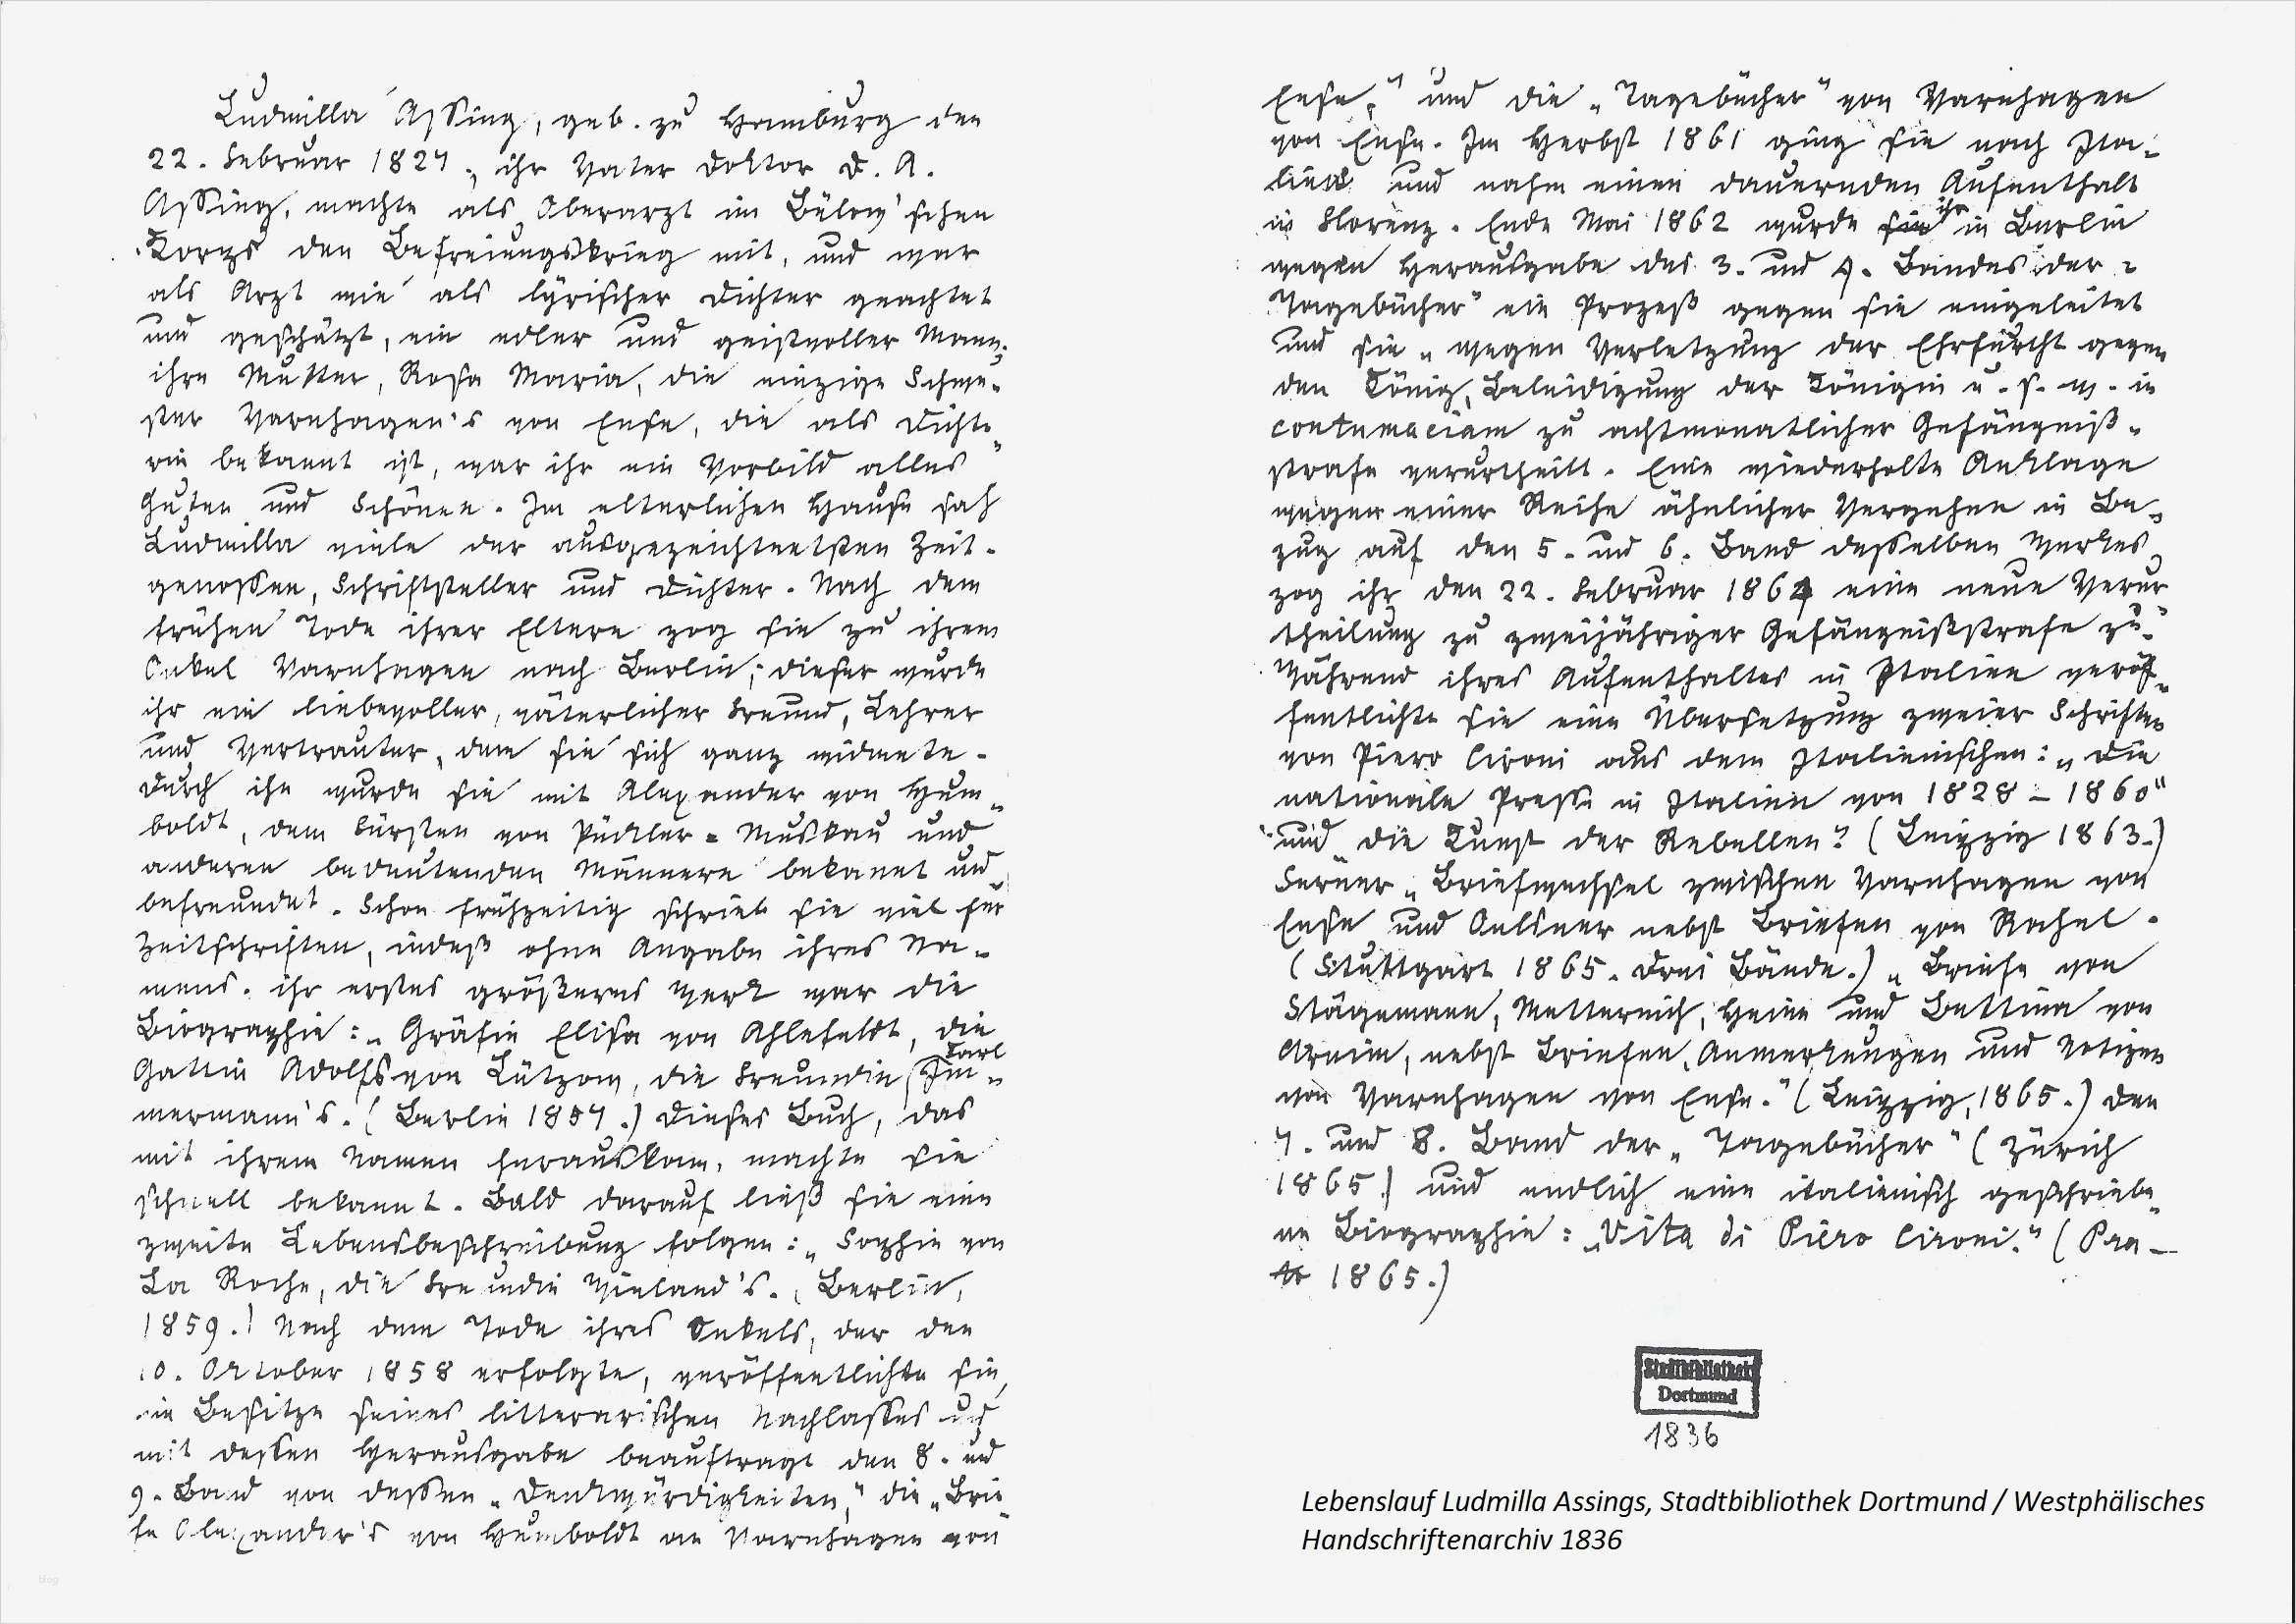 Ludmilla Assing, geb. zu Hamburg den
22. Februar 1827., ihr Vater Doktor D. A.
Assing, machte als Oberarzt im Bülow'schen
Korps den Befreiungskrieg mit, und war
als Arzt wie als lÿrischer Dichter geachtet
und geschätzt, ein edler und geistvoller Mann;
ihre Mutter, Rosa Maria, die einzige Schwe-
ster Varnhagen's von Ense, die als Dichte-
rin bekannt ist, war ihr ein Vorbild alles
Guten und Schönen. Im elterlichen Hause sah
Ludmilla viele der ausgezeichnetsten Zeit-
genossen, Schriftsteller und Dichter. Nach dem
frühen Tode ihrer Eltern zog sie zu ihrem
Onkel Varnhagen nach Berlin; dieser wurde
ihr ein liebevoller, väterlicher Freund, Lehrer
und Vertrauter, dem sie sich ganz widmete.
Durch ihn wurde sie mit Alexander von Hum-
boldt, dem Fürsten von Pückler=Muskau und
anderen bedeutenden Männern bekannt und
befreundet. Schon frühzeitig schrieb sie viel für
Zeitschriften, indeß ohne Angabe ihres Na-
mens. ihr erstes größeres Werk war die
Biographie: „Gräfin Elisa von Ahlefeldt, die
Gattin Adolfs von Lützow, die Freundin Karl Im-
mermann's. (Berlin 1857.) Dieses Buch, das
mit ihrem Namen herauskam, machte sie
schnell bekannt. Bald darauf ließ sie eine
zweite Lebensbeschreibung folgen: „Sophie von
La Roche, die Freundin Wieland's. (Berlin,
1859.) Nach dem Tode ihres Onkels, der den
10. Oktober 1858 erfolgte, veröffentlichte sie,
im Besitze seines litterarischen Nachlasses und
mit dessen Herausgabe beauftragt den 8. und
9. Band von dessen „Denkwürdigkeiten," die „Brie
fe Alexander's von Humboldt an Varnhagen von
Ense," und die „Tagebücher" von Varnhagen
von Ense. Im Herbst 1861 ging sie nach Ita-
lien und nahm einen dauernden Aufenthalt
in Florenz. Ende Mai 1862 wurde ihr in Berlin
wegen Herausgabe des 3. und 4. Bandes der „
Tagebücher" ein Prozeß gegen sie eingeleitet
und sie „wegen Verletzung der Ehrfurcht gegen
den König, Beleidigung der Königin u. s. w. in
contumaciam zu achtmonatlicher Gefängniß-
strafe verurtheilt. Eine wiederholte Anklage
wegen einer Reihe ähnlicher Vergehen in Be-
zug auf den 5. und 6. Band desselben Werkes
zog ihr den 22. Februar 1864 eine neue Verur
theilung zu zweijähriger Gefängnißstrafe zu.
Während ihres Aufenthaltes in Italien veröf-
fentlichte sie eine Übersetzung zweier Schriften
von Piero Cironi aus dem Italienischen: „Die
nationale Presse in Italien von 1828 – 1860"
und „die Kunst der Rebellen" (Leipzig 1863.)
Ferner „Briefwechsel zwischen Varnhagen von
Ense und Oelsner nebst Briefen von Rahel.
(Stuttgart 1865. Drei Bände.) „Briefe von
Stägemann, Metternich, Heine und Bettina von
Arnim, nebst Briefen, Anmerkungen und Notizen
von Varnhagen von Ense." (Leipzig, 1865.) Den
7. und 8. Band der „Tagebücher" (Zürich
1865.) und endlich eine italienisch geschriebe-
ne Biographie: „Vita di Piero Cironi." (Pra-
to 1865.)
Stadtbibliothek
Dortmund
1836
Lebenslauf Ludmilla Assings, Stadtbibliothek Dortmund / Westphälisches
Handschriftenarchiv 1836